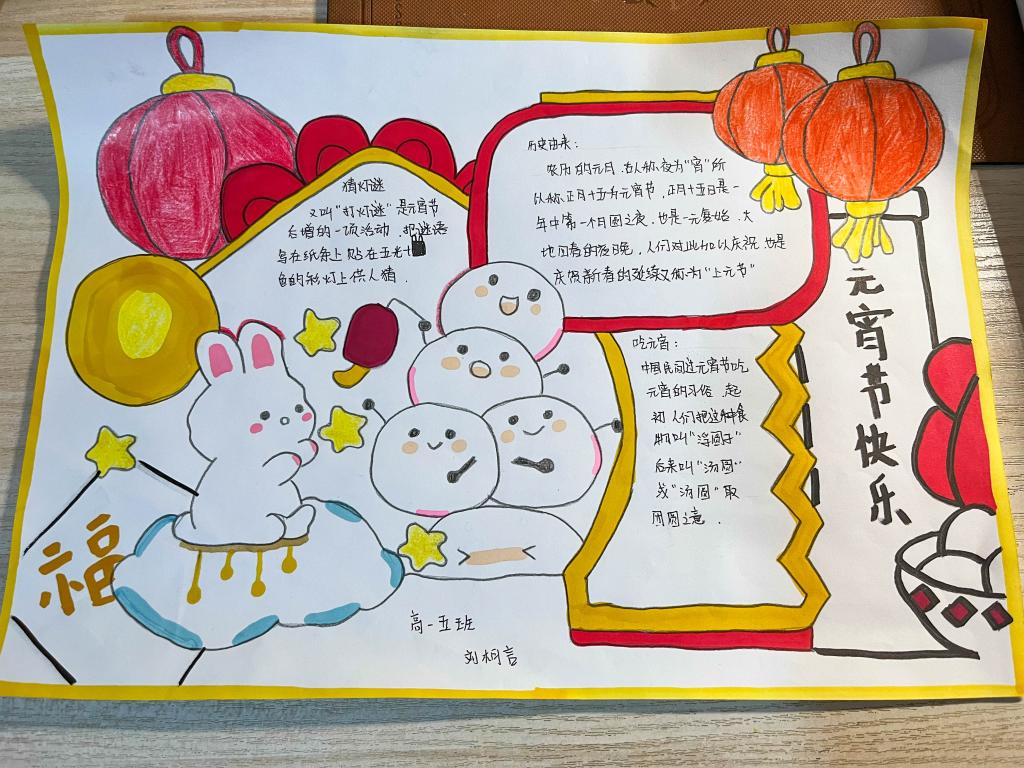 猜灯谜
又叫"打灯谜"是元宵节
后增的一项活动，把谜语
写在纸条上贴在五光十
色的彩灯上供人猜．
历史由来：
农历的元月．古人称夜为"宵"所
以称正月十五为元宵节．正月十五日是一
年中第一个月圆之夜．也是一元复始．大
地回春的夜晚，人们对此加以庆祝．也是
庆贺新春的延续又称为"上元节"
吃元宵：
中国民间过元宵节吃
元宵的习俗．起
初人们把这种食
物叫"浮圆子"
后来叫"汤团"
或"汤圆"取
团圆之意．
元宵节快乐
福
高一五班
刘桐言